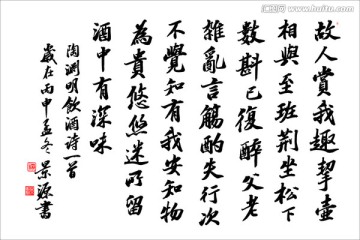 故人賞我趣挈壺
相與至班荊坐松下
數斟已復醉父老
雜亂言觴酌失行次
不覺知有我安知物
為貴悠悠迷所留
酒中有深味
陶淵明飲酒詩一首
歲在丙申孟冬景源書